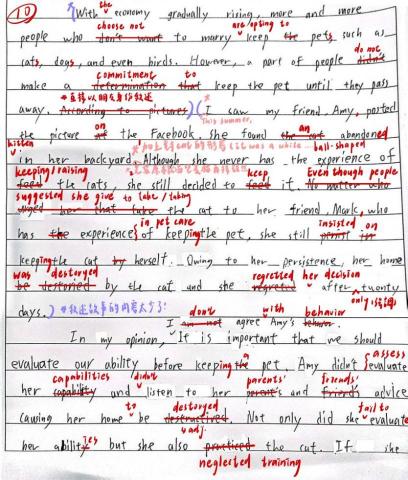 10
With the economy gradually rising, more and more
choose not are/opting to
people who don't want to marry keep the pets such as
cats, dogs, and even birds. However, a part of people didn't do not
commitment to
make a determination that keep the pet until they pass
away. According to pictures, I saw my friend, Amy, posted
This summer,
the picture on the Facebook. She found the an cat abandoned
kitten ball-shaped
in her backyard. Although she never has the experience of
keeping/raising keep Even though people
feed the cats, she still decided to feed it. No matter who
suggested she give to take/taking
urged her that take the cat to her friend, Mark, who
in pet care insisted on
has the experience of keeping the pet, she still persist in
keeping the cat by herself. Owing to her persistence, her home
was destroryed regretted her decision
be destoried by the cat and she regreted after twenty
only
days.
don't with behavior
I am not agree Amy's behavor.
In my opinion, It is important that we should
evaluate our ability before keeping the a pet. Amy didn't evaluate assess
capabilities didn't parents' friends'
her capability and listen to her parent's and friends advices
to destoryed fail to
causing her home be destructived. Not only did she evaluate
adj.
her abilityies but she also practiced the cat. If she
neglected training